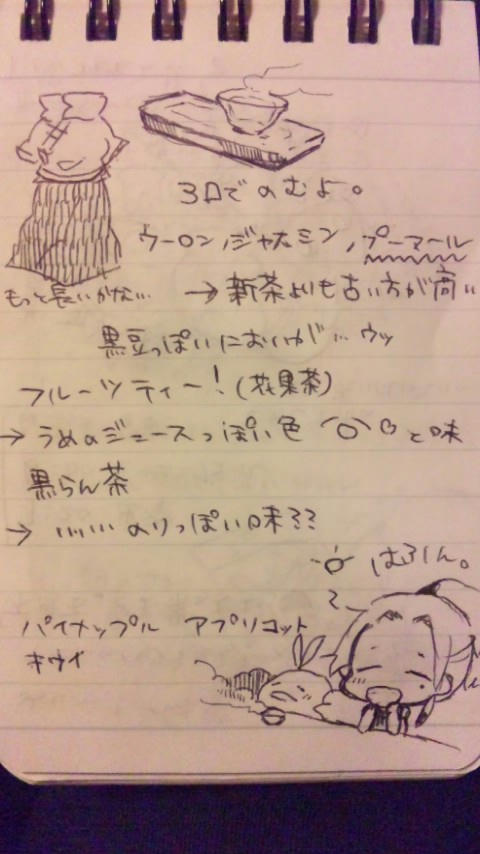 3口でのむよ。
ウーロン,ジャスミン,プーアール
もっと長いかな…
→新茶よりも古い方が高い
黒豆っぽいにおいが…ウッ
フルーツティー!(花果茶)
→うめのジュースっぽい色 と味
黒らん茶
→ ……のりっぽい味??
はふーん。
パイナップル アプリコット
キウイ